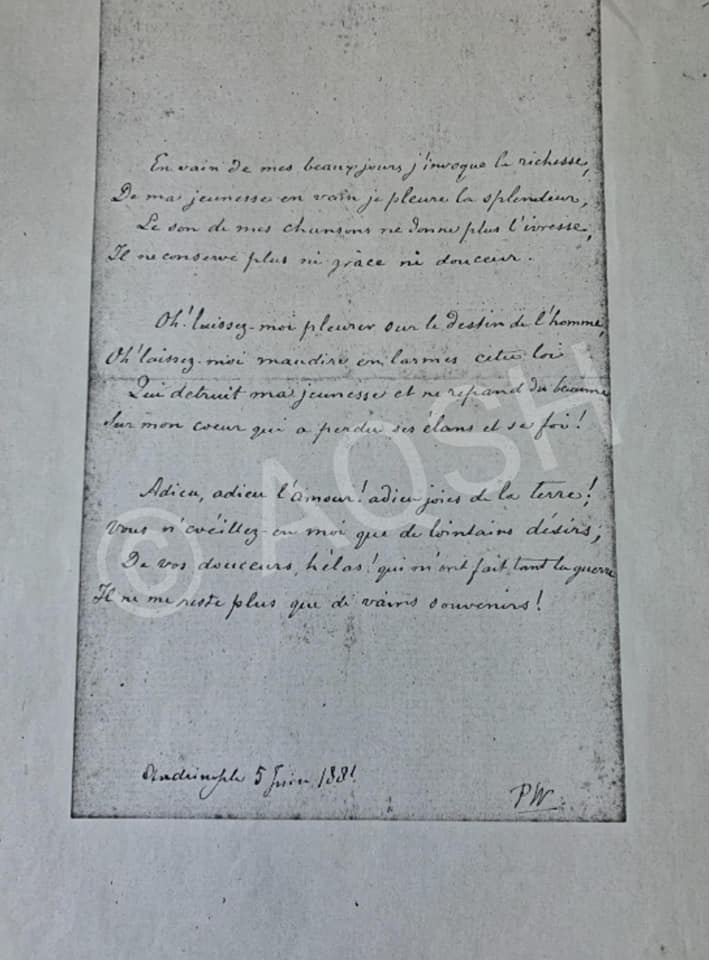 En vain de mes beaux jours j'invoque la richesse,
De ma jeunesse en vain je pleure la splendeur,
Le son de mes chansons ne donne plus l'ivresse,
Il ne conserve plus ni grâce ni douceur.
Oh! laissez-moi pleurer sur le destin de l'homme,
Oh! laissez-moi maudire en larmes cette loi
Qui detruit ma jeunesse et ne repand du beaume
Sur mon coeur qui a perdu ses élans et sa foi!
Adieu, adieu l'amour! adieu joies de la terre!
Vous n'évéillez en moi que de lointains désirs;
De vos douceurs, hélas! qui m'ont fait tant la guerre
Il ne me reste plus que de vains souvenirs!
5 1881
PW
© AQSH